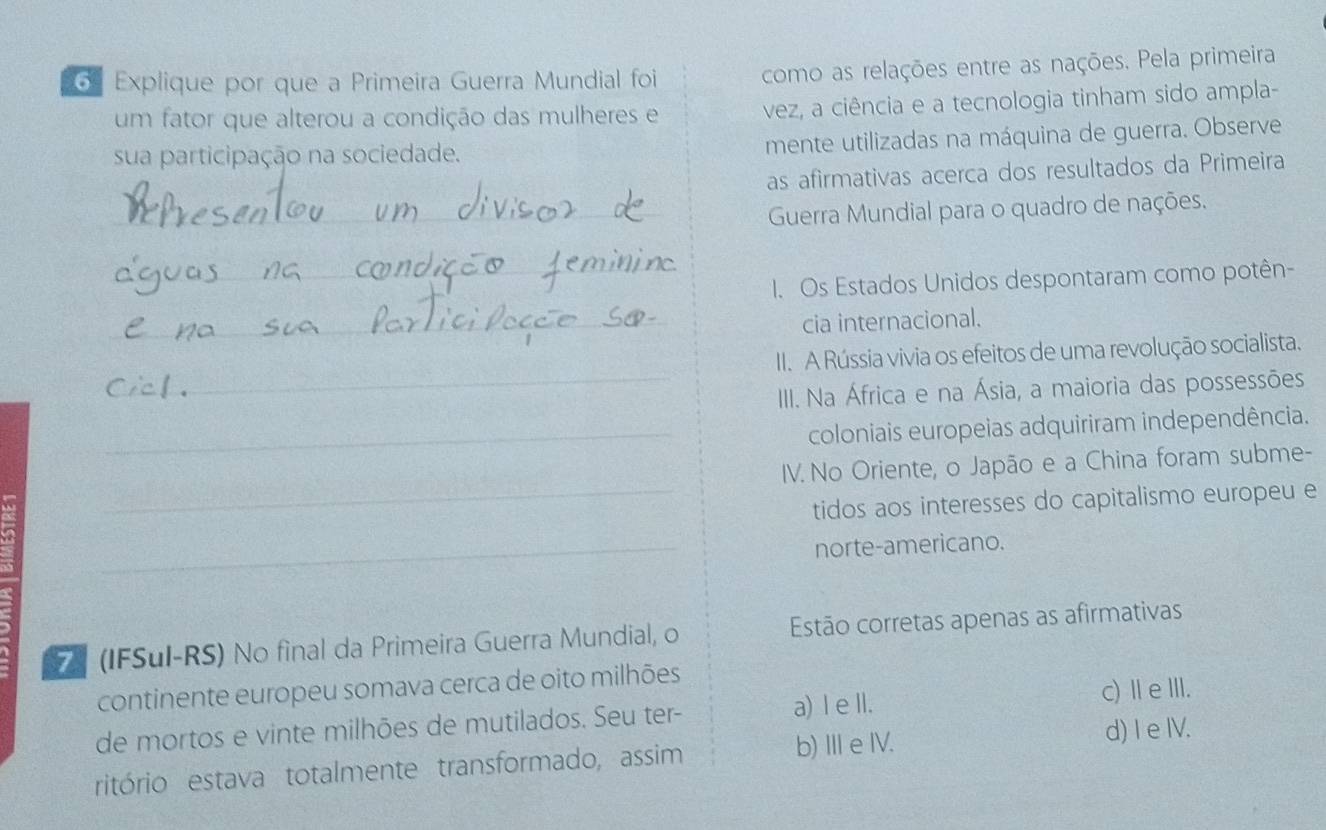 6 Explique por que a Primeira Guerra Mundial foi
um fator que alterou a condição das mulheres e
sua participação na sociedade.
Representou um divisor de
águas na condição feminina
e na sua Participação so-
cial.
7 (IFSul-RS) No final da Primeira Guerra Mundial, o
continente europeu somava cerca de oito milhões
de mortos e vinte milhões de mutilados. Seu ter-
ritório estava totalmente transformado, assim
como as relações entre as nações. Pela primeira
vez, a ciência e a tecnologia tinham sido ampla-
mente utilizadas na máquina de guerra. Observe
as afirmativas acerca dos resultados da Primeira
Guerra Mundial para o quadro de nações.
I. Os Estados Unidos despontaram como potên-
cia internacional.
II. A Rússia vivia os efeitos de uma revolução socialista.
III. Na África e na Ásia, a maioria das possessões
coloniais europeias adquiriram independência.
IV. No Oriente, o Japão e a China foram subme-
tidos aos interesses do capitalismo europeu e
norte-americano.
Estão corretas apenas as afirmativas
a) I e II.
b) III e IV.
c) II e III.
d) I e IV.
HISTÓRIA | BIMESTRE 1